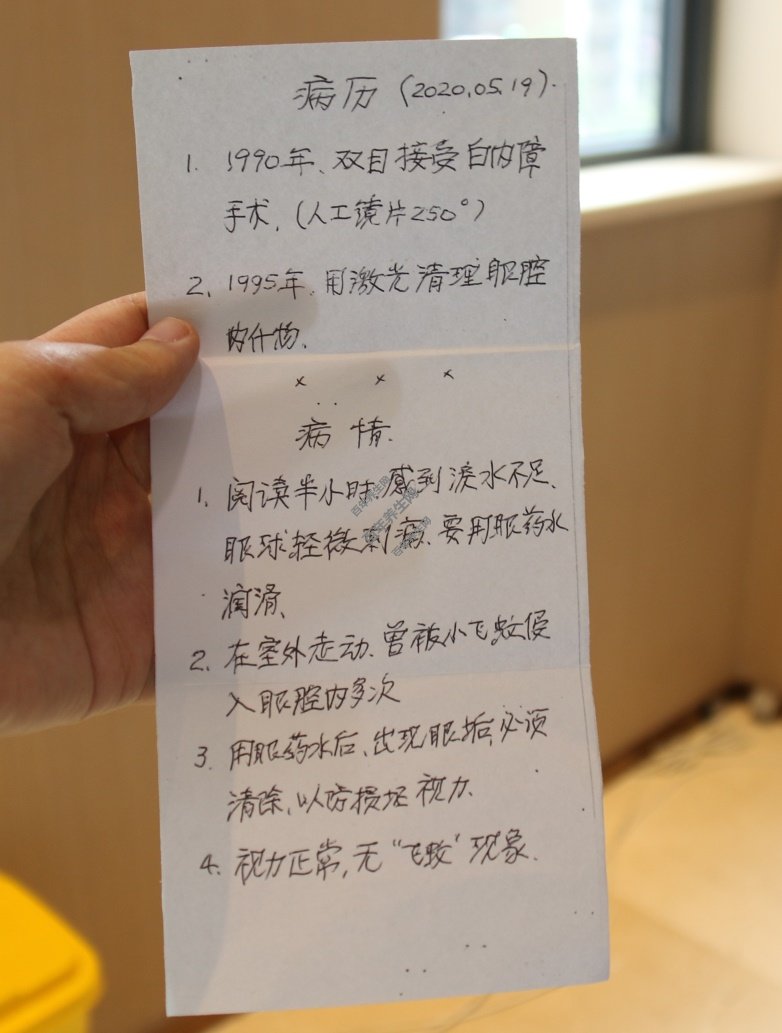 病历 (2020.05.19).
1. 1990年、双目接受白内障
手术, (人工镜片250°)
2. 1995年、用激光清理眼腔
的什物.
× × ×
病情.
1. 阅读半小时、感到泪水不足、
眼球轻微刺痛、要用眼药水
润滑、
2. 在室外走动、曾被小飞蚊侵
入眼腔内多次
3. 用眼药水后、出现眼垢,必须
清除,以防损坏视力.
4. 视力正常,无“飞蚊”现象.